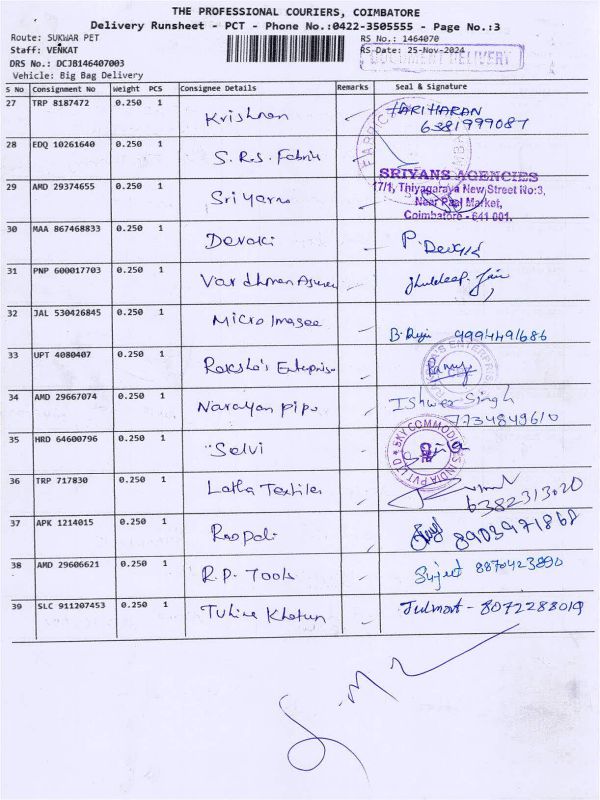 THE PROFESSIONAL COURIERS, COIMBATORE
Delivery Runsheet - PCT - Phone No.:0422-3505555 - Page No.:3
Route: SUKWAR PET
RS No.: 1464070
Staff: VENKAT
RS Date: 25-Nov-2024
DOCUMENT DELIVERY
DRS No.: DCJB146407003
Vehicle: Big Bag Delivery
S No Consignment No Weight PCS Consignee Details Remarks Seal & Signature
27 TRP 8187472 0.250 1 Krishnan HARIHARAN
6381999087
28 EDQ 10261640 0.250 1 S.R.S. Fabric
SRIYANS AGENCIES
17/1, Thiyagaraya New Street No:3,
Near Market,
Coimbatore - 641 001.
29 AMD 29374655 0.250 1 Sri yarns
30 MAA 867468833 0.250 1 Devaki P. Devaki
31 PNP 600017703 0.250 1 Vardhman
32 JAL 530426845 0.250 1 Micro Imagee B. 9994491686
33 UPT 4080407 0.250 1 Raksha's Enterprise
34 AMD 29667074 0.250 1 Narayan pipe Ishwar Singh
7734849610
35 HRD 64600796 0.250 1 Selvi SKY COMMODITIES INDIA PVT LTD
36 TRP 717830 0.250 1 Latha Textiles
6382313020
37 APK 1214015 0.250 1 Roopali 8903971868
38 AMD 29606621 0.250 1 R.P. Tools Sujeet 8870423890
39 SLC 911207453 0.250 1 Tuhina Khatun 8072288019